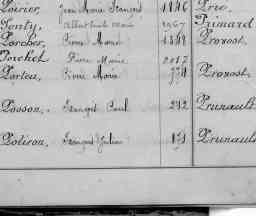 Poirier, Jean Marie François 1846 Prié,
Ponty, Albert Emile Marie 1967 Primard
Porcher, Pierre Marie 1348 Provost
Porchet Pierre Marie 2017
Porteu, Pierre Marie 774 Provost,
Posson, François Paul 242 Prunault
Potiron, François Julien 151 Prunault